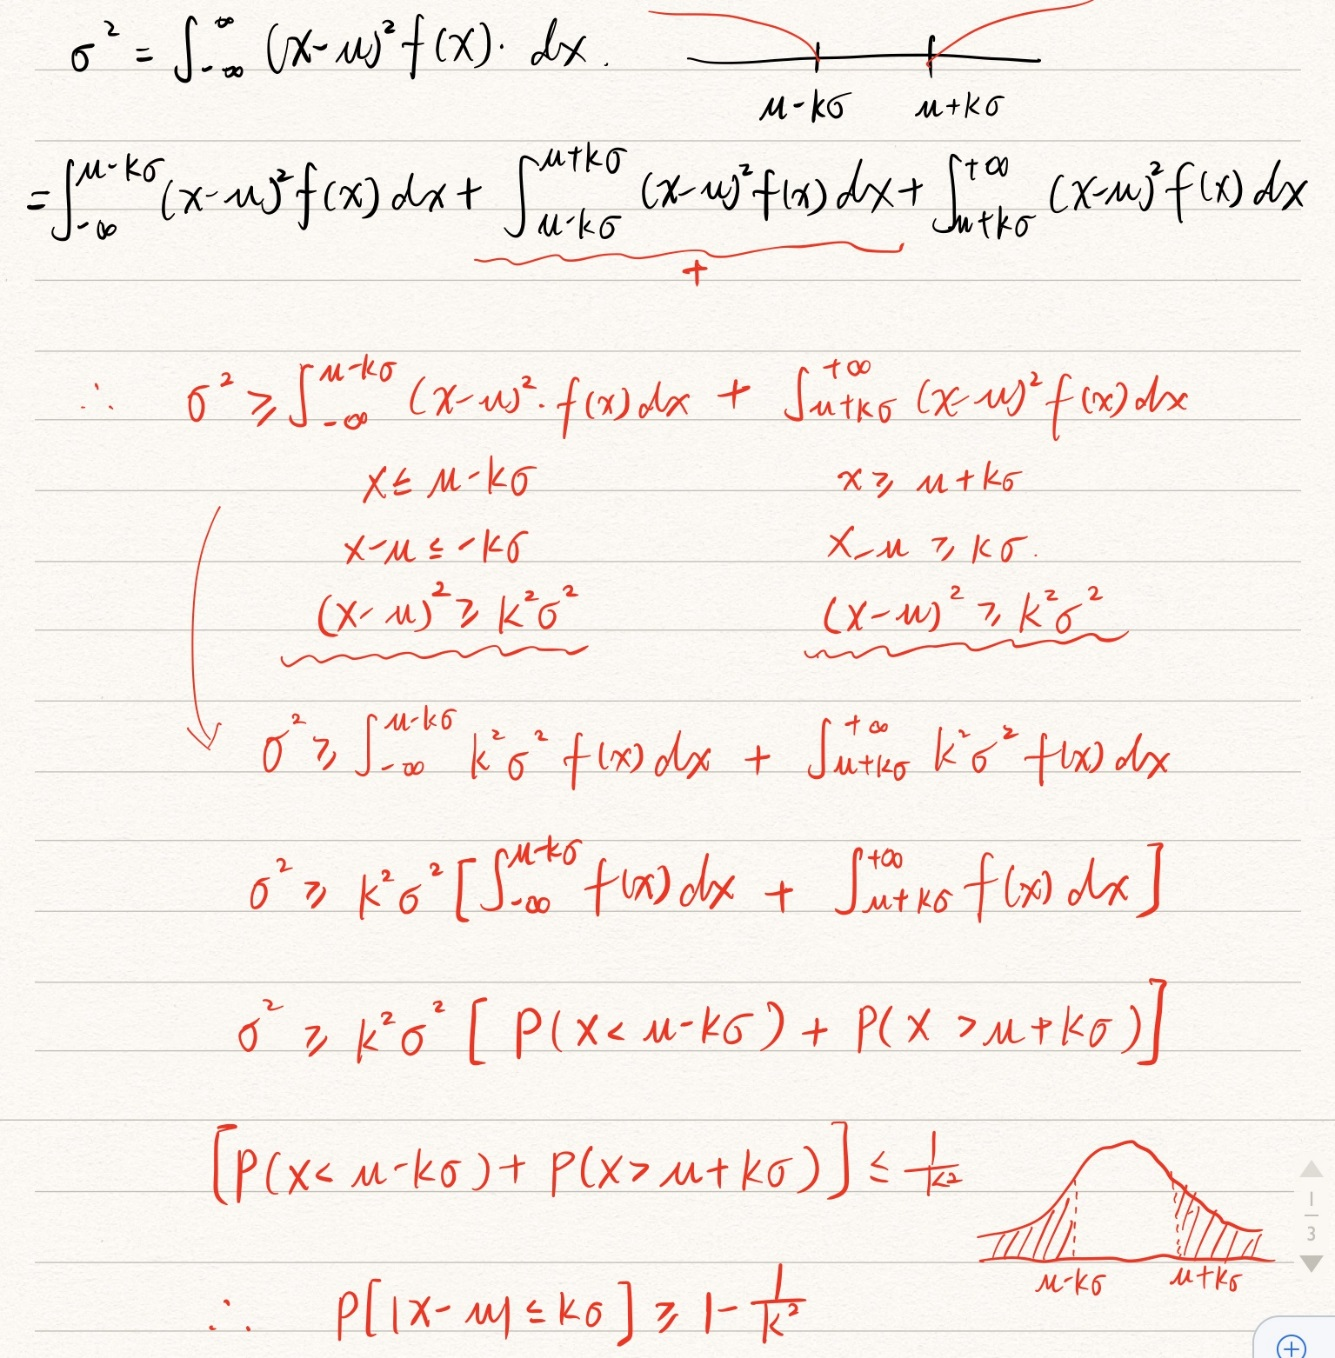 σ² = ∫_{-∞}^{∞} (x-μ)² f(x)· dx.
μ-kσ μ+kσ
= ∫_{-∞}^{μ-kσ} (x-μ)² f(x) dx + ∫_{μ-kσ}^{μ+kσ} (x-μ)² f(x) dx + ∫_{μ+kσ}^{+∞} (x-μ)² f(x) dx
+
∴ σ² ≥ ∫_{-∞}^{μ-kσ} (x-μ)²· f(x) dx + ∫_{μ+kσ}^{+∞} (x-μ)² f(x) dx
x ≤ μ-kσ x ≥ μ+kσ
x-μ ≤ -kσ x-μ ≥ kσ.
(x-μ)² ≥ k²σ² (x-μ)² ≥ k²σ²
σ² ≥ ∫_{-∞}^{μ-kσ} k²σ² f(x) dx + ∫_{μ+kσ}^{+∞} k²σ² f(x) dx
σ² ≥ k²σ² [∫_{-∞}^{μ-kσ} f(x) dx + ∫_{μ+kσ}^{+∞} f(x) dx]
σ² ≥ k²σ² [P(x < μ-kσ) + P(x > μ+kσ)]
[P(x < μ-kσ) + P(x > μ+kσ)] ≤ 1/k²
μ-kσ μ+kσ
∴ P[|x-μ| ≤ kσ] ≥ 1 - 1/k²
1
3